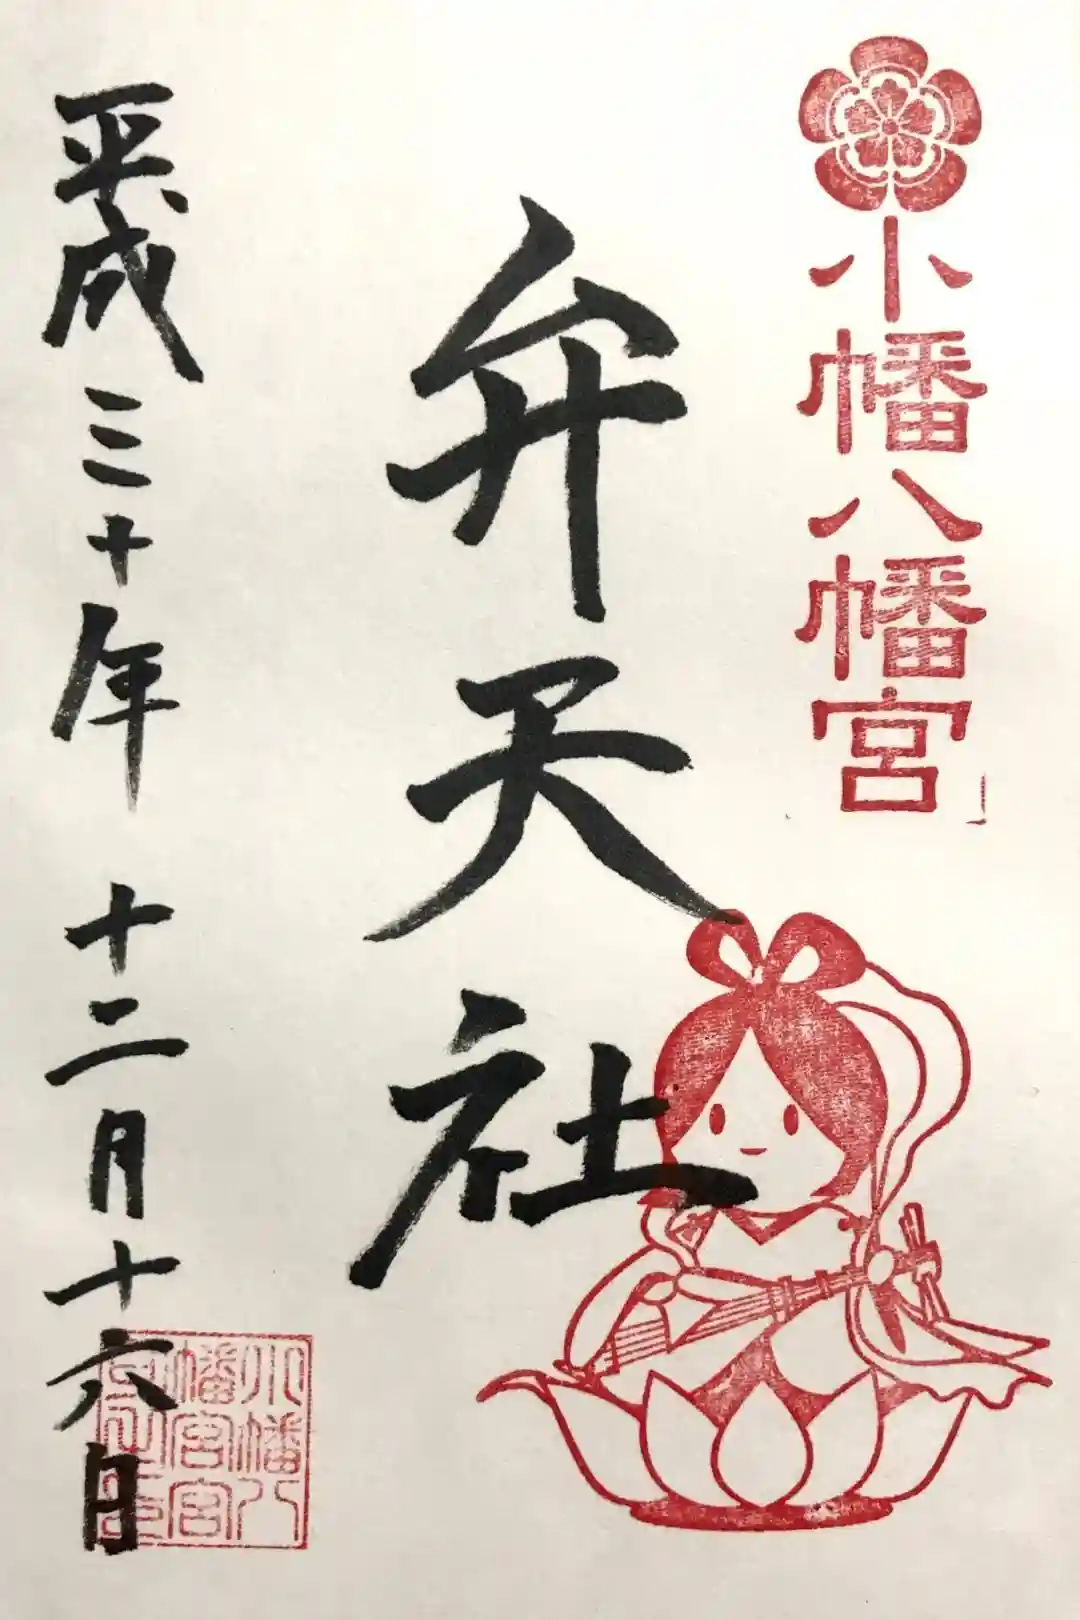 小幡八幡宮
弁天社
平成三十年 十二月十六日
小幡八
幡宮宮